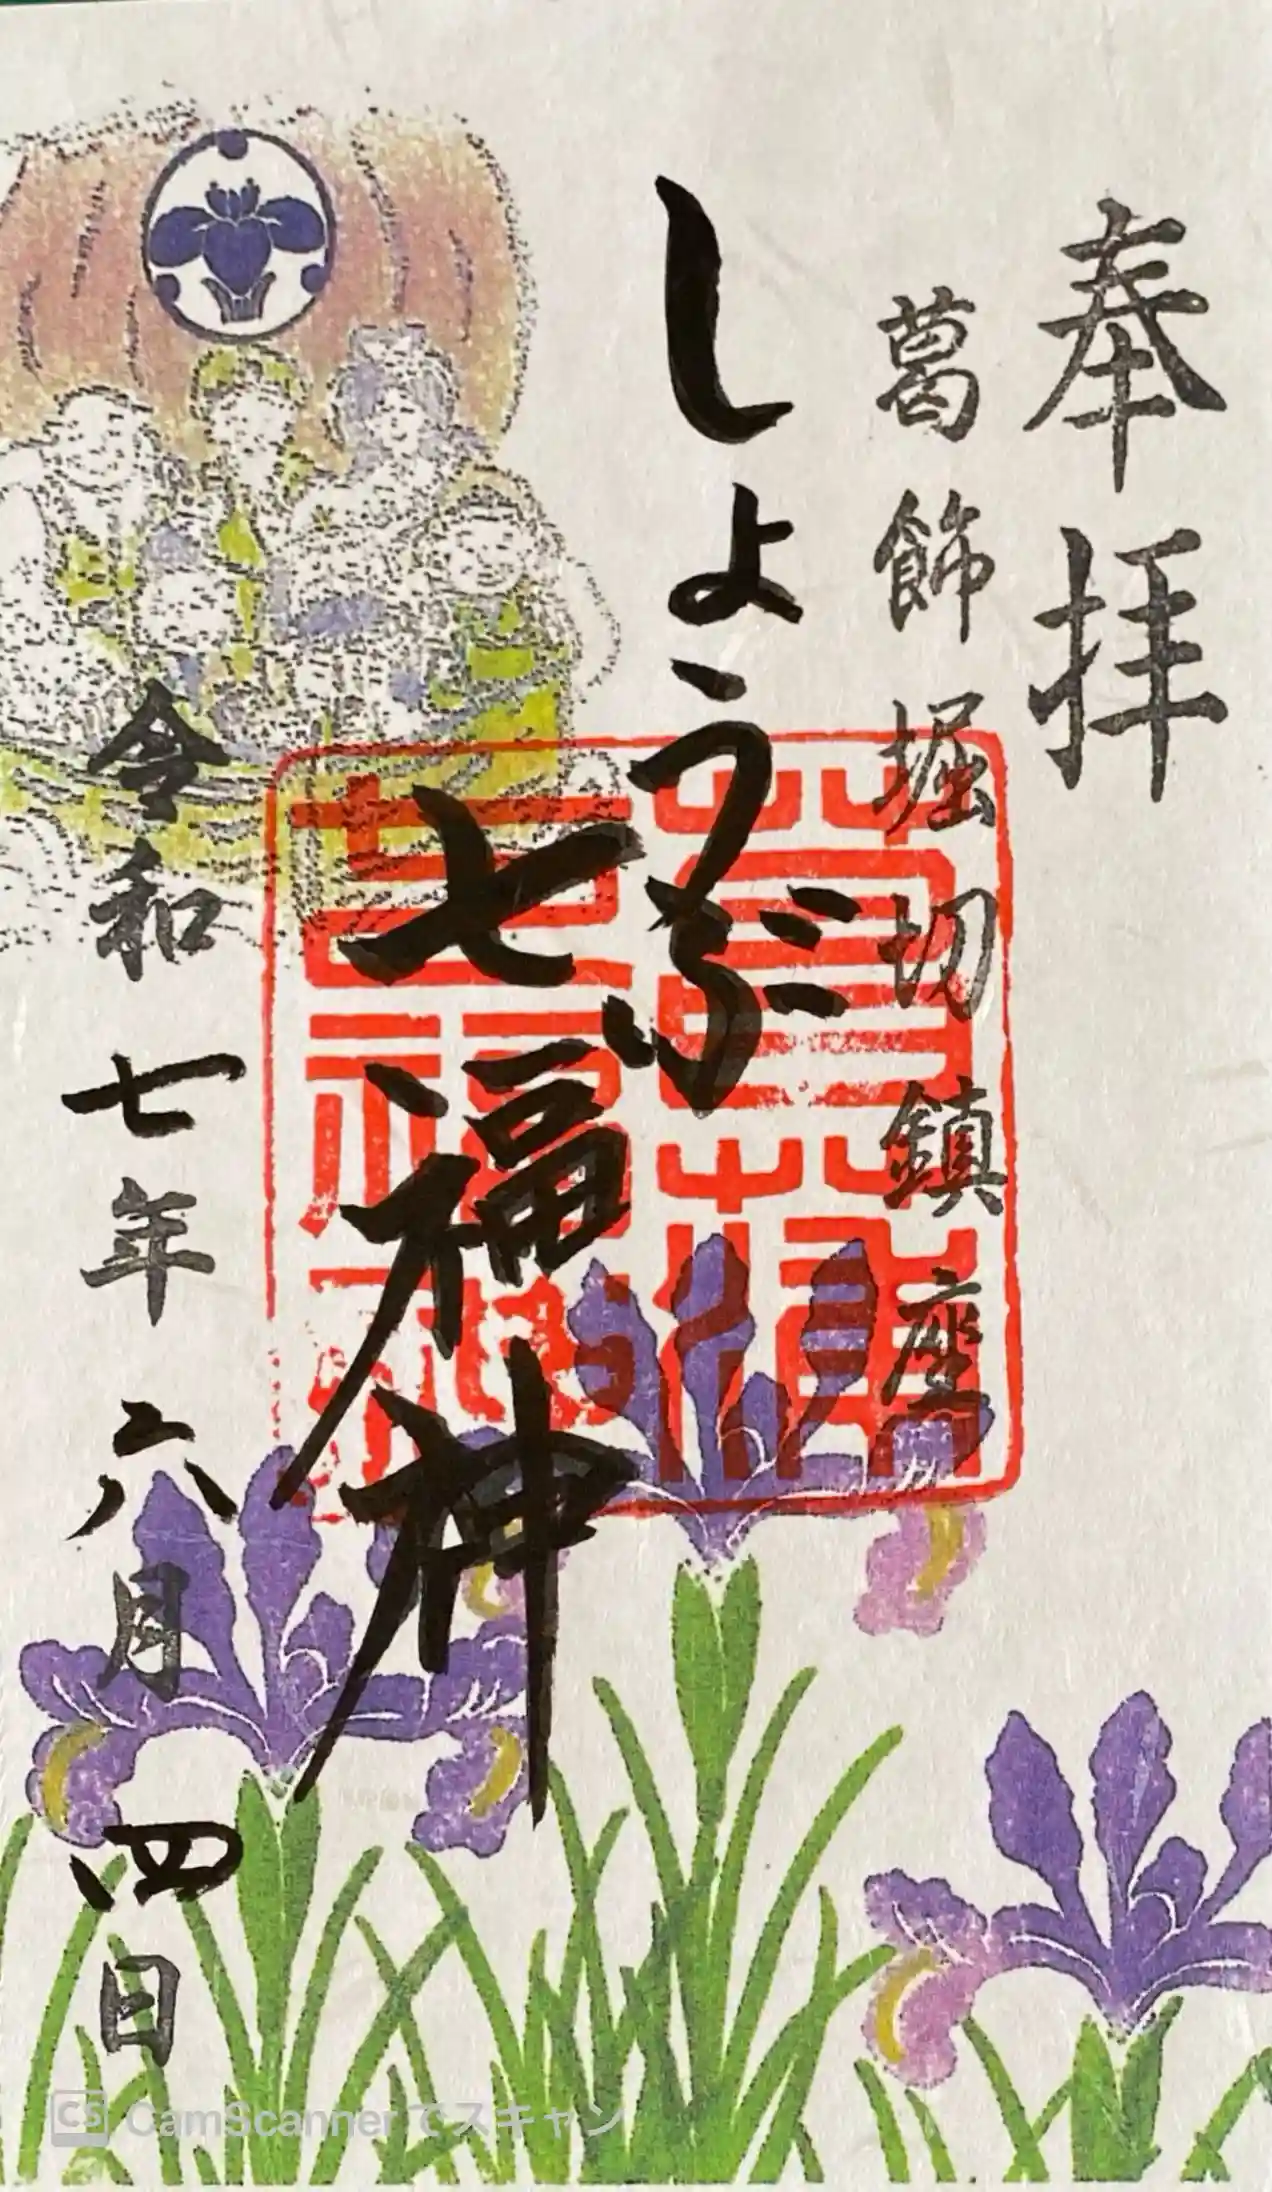 奉拝
葛飾堀切鎮座
しょうぶ
七福神
令和七年六月四日
菖蒲
七福神
CS CamScannerでスキャン